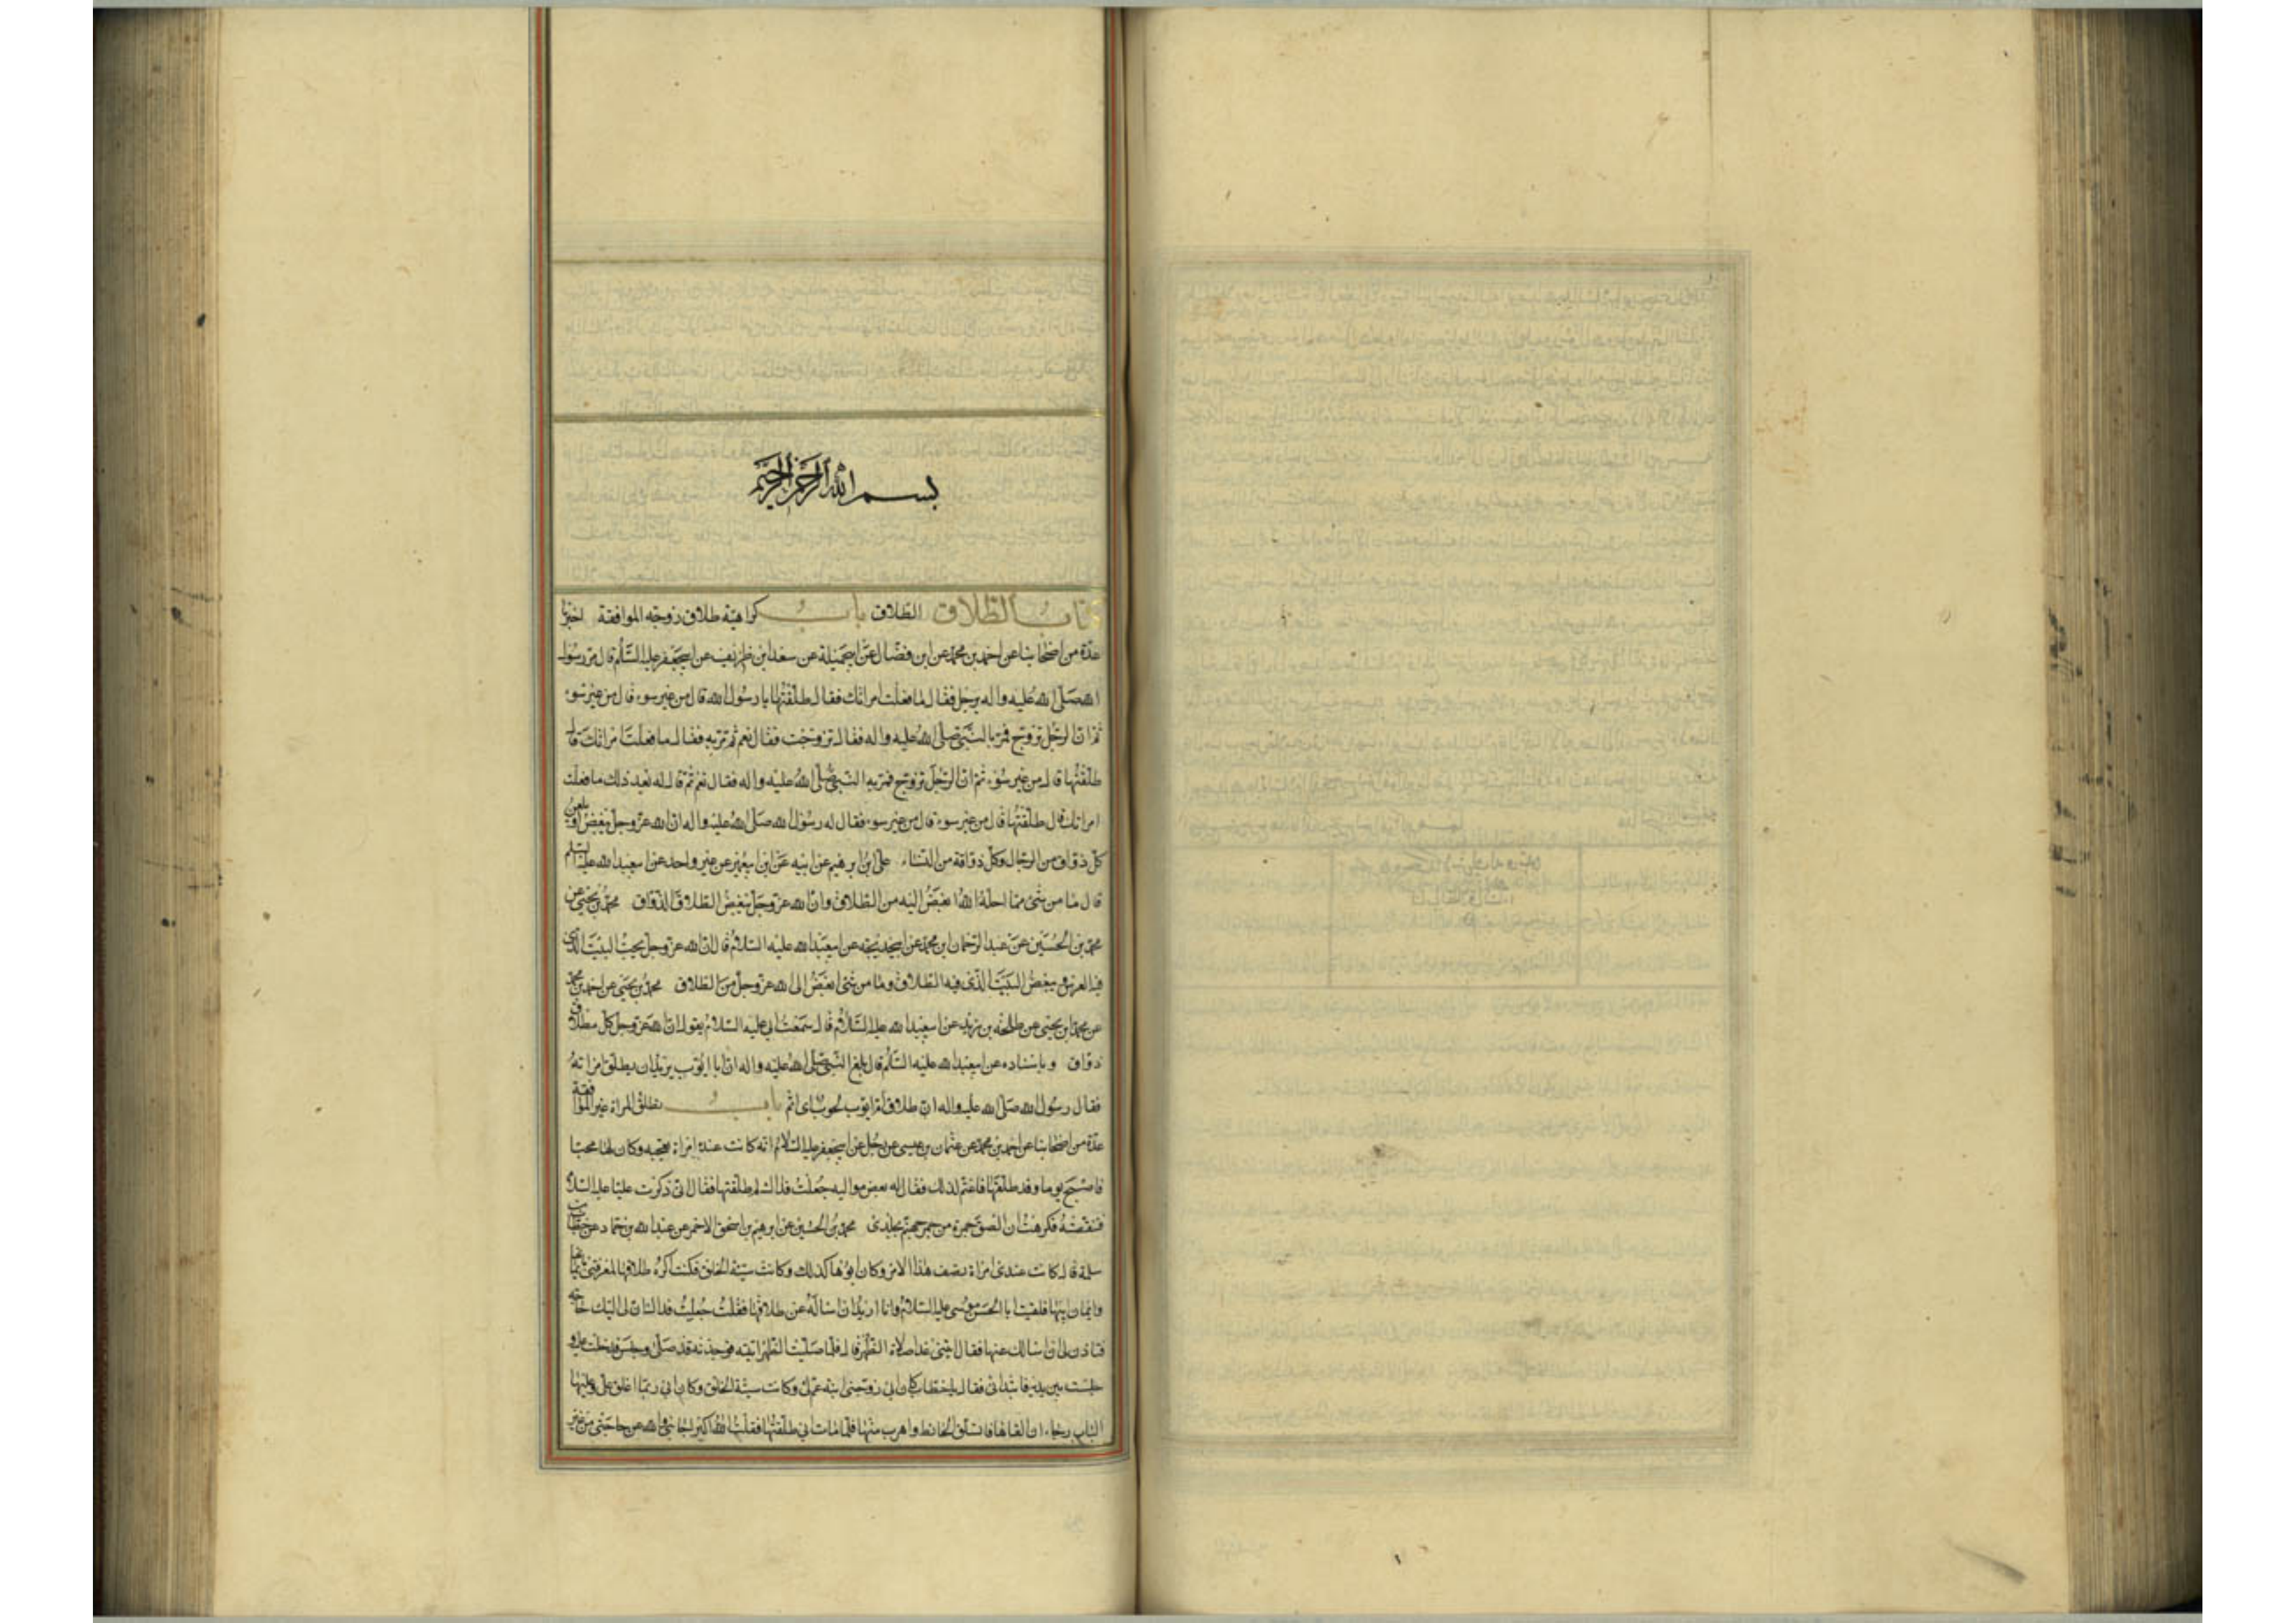 بسم الله الرحمن الرحيم
كتاب الطلاق الطلاق باب كراهية طلاق زوجته الموافقة اخبرنا
عدة من اصحابنا عن احمد بن محمد عن ابن فضال عن ابي جميلة عن سعد ابن طريف عن ابي جعفر عليه السلم قال مر رسول
الله صلى الله عليه واله برجل فقال ما فعلت امراتك فقال طلقتها يا رسول الله قال من غير سوء قال من غير سوء
ثم ان الرجل تزوج فمر به النبي صلى الله عليه واله فقال تزوجت فقال نعم ثم مر به فقال ما فعلت امراتك قال
طلقتها قال من غير سوء ثم ان الرجل تزوج فمر به النبي صلى الله عليه واله فقال نعم ثم قال له بعد ذلك ما فعلت
امراتك قال طلقتها قال من غير سوء قال من غير سوء فقال له رسول الله صلى الله عليه واله ان الله عز وجل يبغض او يلعن
كل ذواق من الرجال وكل ذواقة من النساء على ابن ابرهيم عن ابيه عن ابن ابي عمير عن غير واحد عن ابي عبد الله عليه السلم
قال ما من شيء مما احله الله ابغض اليه من الطلاق وان الله عز وجل يبغض الطلاق الذواق محمد بن يحيى عن
محمد بن الحسين عن عبد الرحمان بن محمد عن ابي خديجه عن ابي عبد الله عليه السلام قال ان الله عز وجل يحب البيت الذي
فيه العرس ويبغض البيت الذي فيه الطلاق وما من شيء ابغض الى الله عز وجل من الطلاق محمد بن يحيى عن احمد بن محمد
عن محمد ابن يحيى عن طلحه بن زيد عن ابي عبد الله عليه السلام قال سمعت ابي عليه السلام يقول ان الله عز وجل كل مطلاق
ذواق وباسناده عن ابي عبد الله عليه السلم قال بلغ النبي صلى الله عليه واله ان ابا ايوب يريد ان يطلق امراته
فقال رسول الله صلى الله عليه واله ان طلاق ام ايوب لحوب اي اثم باب تطليق المراة غير الموافقة
عدة من اصحابنا عن احمد بن محمد عن عثمان بن عيسى عن رجل عن ابي جعفر عليه السلام انه كانت عنده امراة تعجبه وكان لها محبا
فاصبح يوما وقد طلقها فاغتم لذلك فقال له بعض مواليه جعلت فداك لم طلقتها فقال اني ذكرت عليا عليه السلام
فتنقصته فكرهت ان الصق جمرة من جمر جهنم بجلدي محمد بن الحسين عن ابرهيم بن اسحق الاحمر عن عبد الله بن حماد عن خطاب بن
سلمة قال كانت عندي امراة تصف هذا الامر وكان ابوها كذلك وكانت سيئة الخلق فكنت اكره طلاقها لمعرفتي بايمانها
وايمان ابيها فلقيت ابا الحسن موسى عليه السلام وانا اريد ان اساله عن طلاقها فقلت جعلت فداك ان لي اليك حاجة
فتاذن لي ان اسالك عنها فقال ايتني غدا صلاة الظهر قال فلما صليت الظهر اتيته فوجدته قد صلى وجلس فدخلت عليه و
جلست بين يديه فابتداني فقال يا خطاب كان ابي زوجني ابنة عم لي وكانت سيئة الخلق وكان ابي ربما اغلق علي وعليها
الباب رجاء ان القاها فاتسلق الحائط واهرب منها فلما مات ابي طلقتها فقلت الله اكبر اجابني والله عن حاجتي من غير